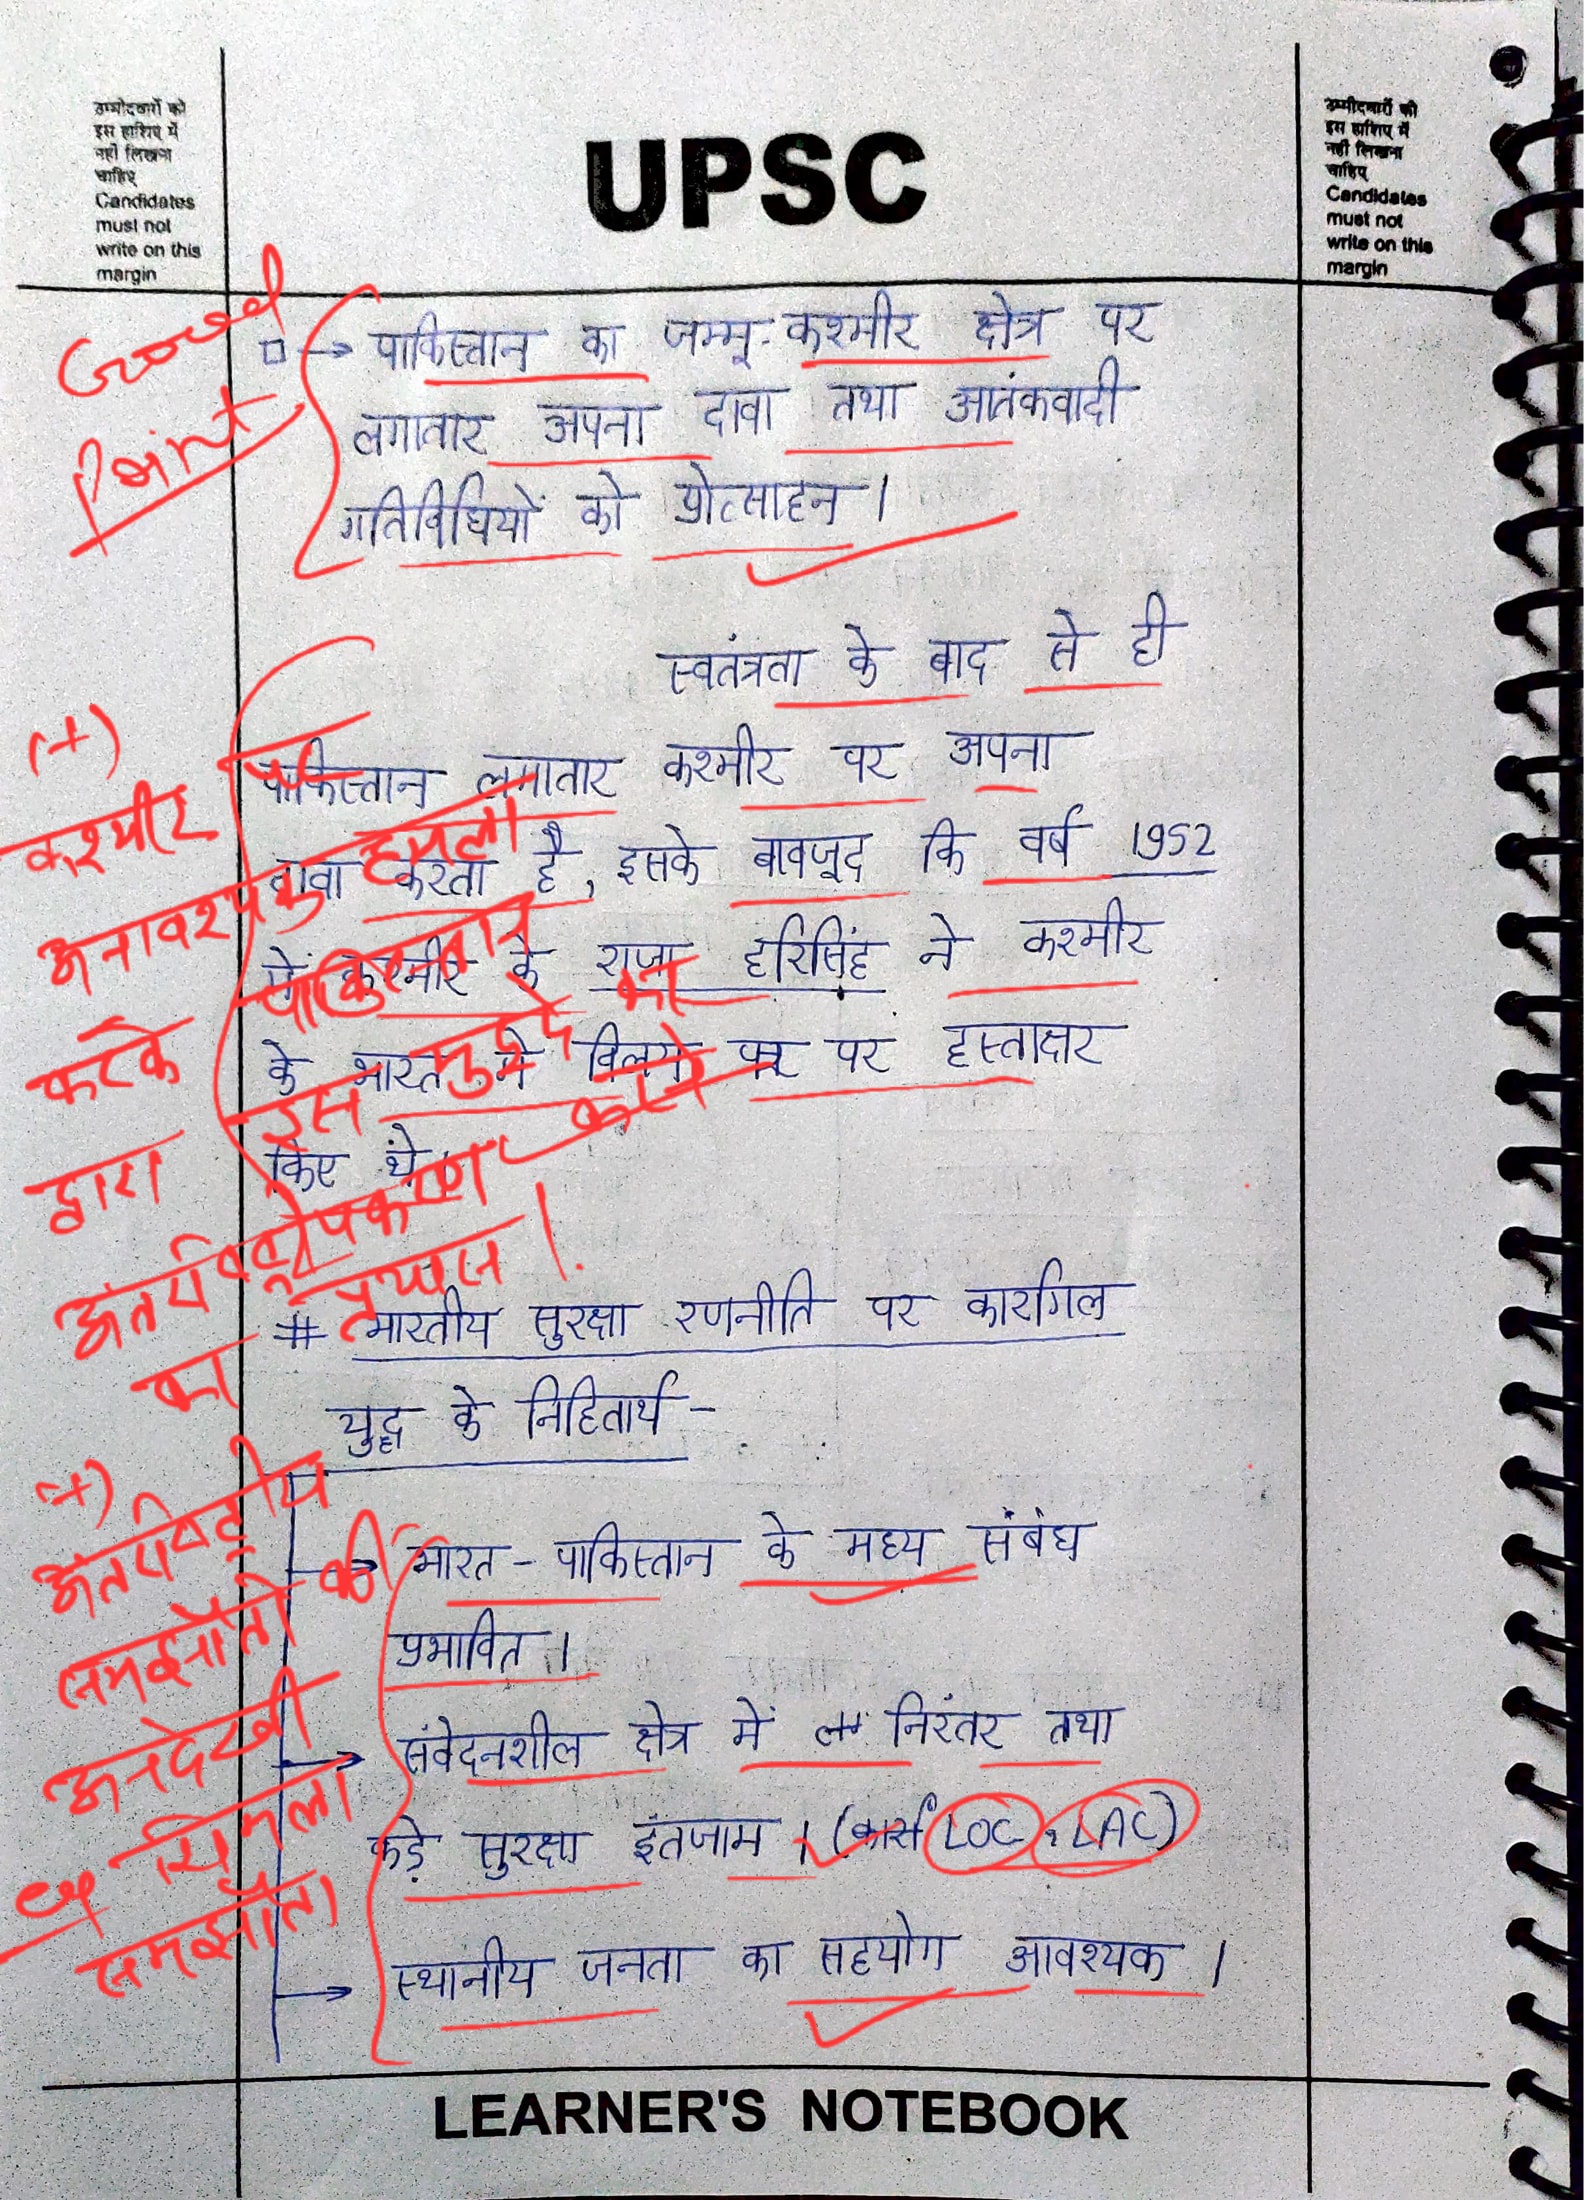 उम्मीदवारों को
इस हाशिए में
नहीं लिखना
चाहिए
Candidates
must not
write on this
margin
UPSC
उम्मीदवारों को
इस हाशिए में
नहीं लिखना
चाहिए
Candidates
must not
write on this
margin
Good
Point
→ पाकिस्तान का जम्मू-कश्मीर क्षेत्र पर
लगातार अपना दावा तथा आतंकवादी
गतिविधियों को प्रोत्साहन।
स्वतंत्रता के बाद से ही
पाकिस्तान लगातार कश्मीर पर अपना
दावा करता है, इसके बावजूद कि वर्ष 1952
में कश्मीर के राजा हरिसिंह ने कश्मीर
के भारत में विलय पत्र पर हस्ताक्षर
किए थे।
(+)
कश्मीर हमला
अनावश्यक
करके पाकिस्तान
द्वारा इस मुद्दे का
अंतर्राष्ट्रीयकरण करने
का प्रयास।
# भारतीय सुरक्षा रणनीति पर कारगिल
युद्ध के निहितार्थ -
→ भारत - पाकिस्तान के मध्य संबंध
प्रभावित।
→ संवेदनशील क्षेत्र में निरंतर तथा
कड़े सुरक्षा इंतजाम। (LOC, LAC)
→ स्थानीय जनता का सहयोग आवश्यक।
(+)
अंतर्राष्ट्रीय
समझौतो की
अनदेखी
शिमला
समझौता
LEARNER'S NOTEBOOK